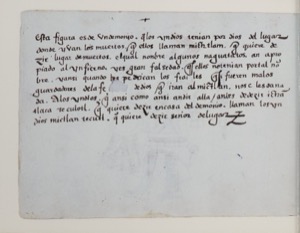 Esta figura es de Un demonyo. q̃ los yndios tenian por dios del lugar
donde yvan los muertos, q̃ ellos llaman mictlan, q̃ quiere de
zir lugar de muertos, el qual nombre algunos naguatatos an apro
piado al ynfierno. yes gran falsedad, q̃ ellos no tenian por tal no
bre. quanto los fieles q̃ fueron malos
guardadores de la fe de dios q̃ yran al mictlan,
A los yndios, q̃ ansi como ansi an de yr alla
q̃ quiere dezir en casa del demonio. llaman los yn
dios mictlan tecutli. q̃ quiere dezir señor del lugar